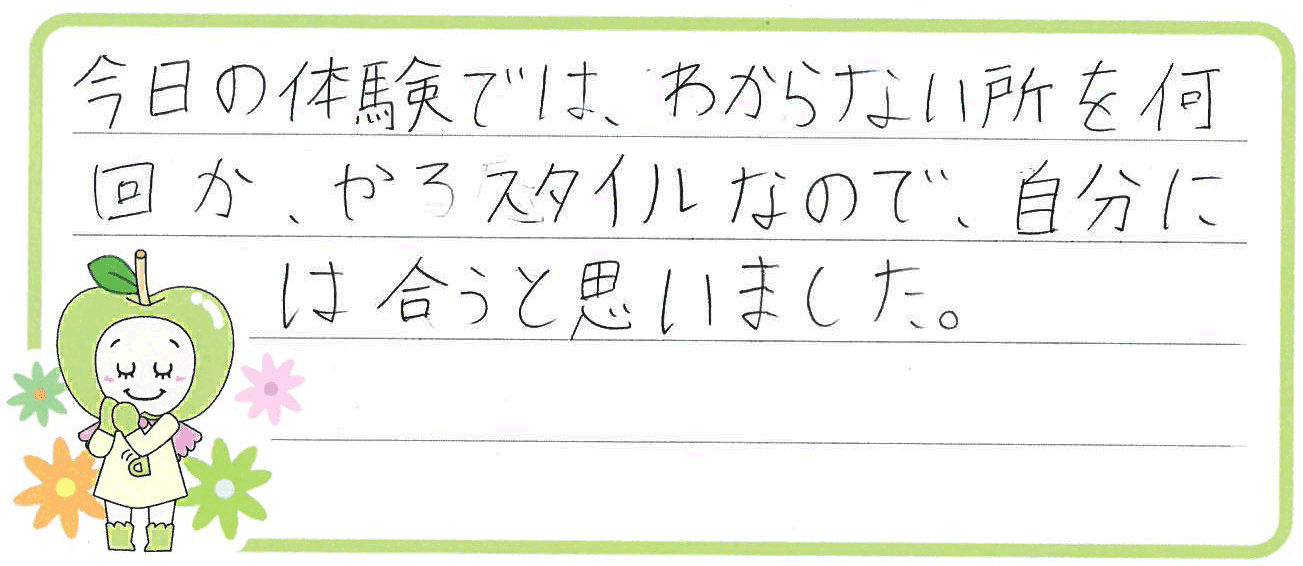 今日の体験では、わからない所を何
回か、やるスタイルなので、自分に
は合うと思いました。